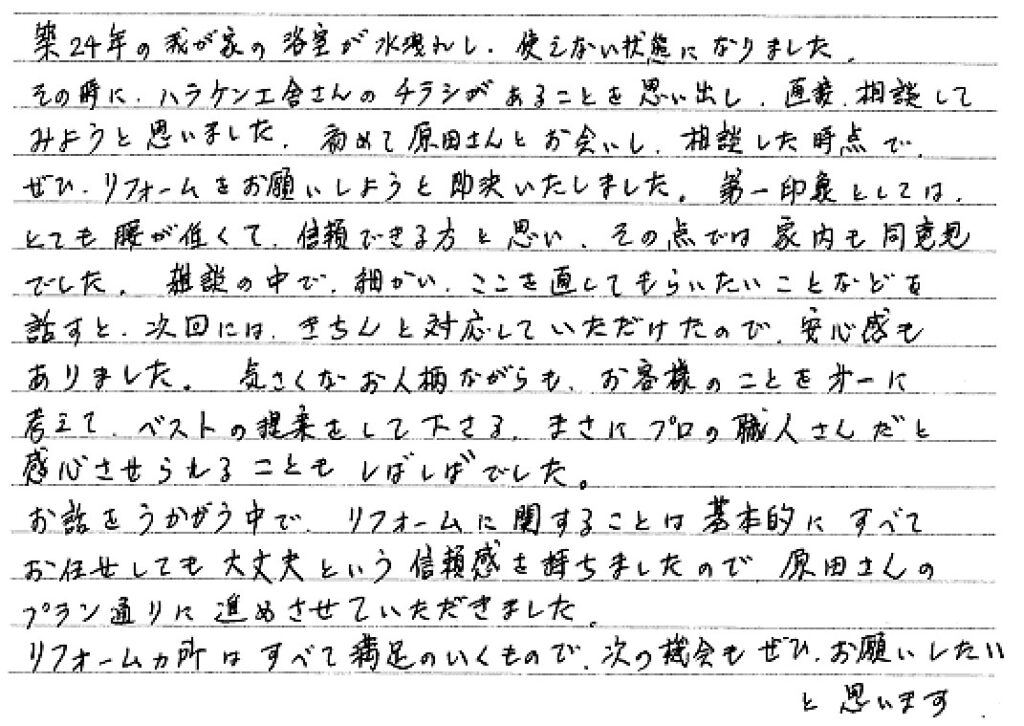 築24年の我が家の浴室が水洩れし、使えない状態になりました、
その時に、ハラケン工舎さんのチラシがあることを思い出し、直接、相談して
みようと思いました、初めて原田さんとお会いし、相談した時点で、
ぜひ、リフォームをお願いしようと即決いたしました。第一印象としては、
とても腰が低くて、信頼できる方と思い、その点では家内も同意見
でした。雑談の中で、細かい、ここを直してもらいたいことなどを
話すと、次回には、きちんと対応していただけたので、安心感も
ありました。気さくなお人柄ながらも、お客様のことを才一に
考えて、ベストの提案をして下さる、まさにプロの職人さんだと
感心させられることもしばしばでした。
お話をうかがう中で、リフォームに関することは基本的にすべて
お任せしても大丈夫という信頼感を持ちましたので、原田さんの
プラン通りに進めさせていただきました、
リフォームカ所はすべて満足のいくもので、次の機会もぜひ、お願いしたい
と思います、